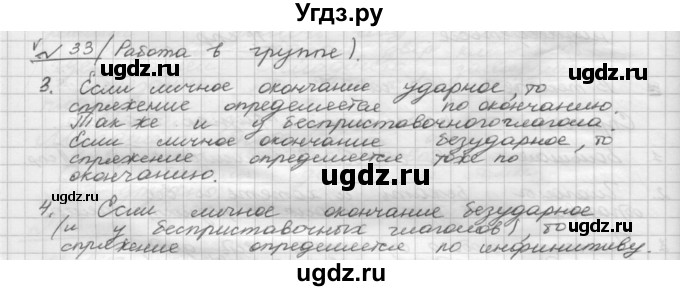 Угдз.ру
№ 33 (Работа в группе).
ugdz.ru
ugdz.ru
3. Если личное окончание ударное, то
спряжение определяется по окончанию.
ugdz.ru
Так же и у бесприставочного глагола.
Если личное окончание безударное, то
спряжение определяется тоже по
окончанию.
ugdz.ru
ugdz.ru
4. Если личное окончание безударное
(и у бесприставочных глаголов), то
ugdz.ru
спряжение определяется по инфинитиву.
ugdz.ru